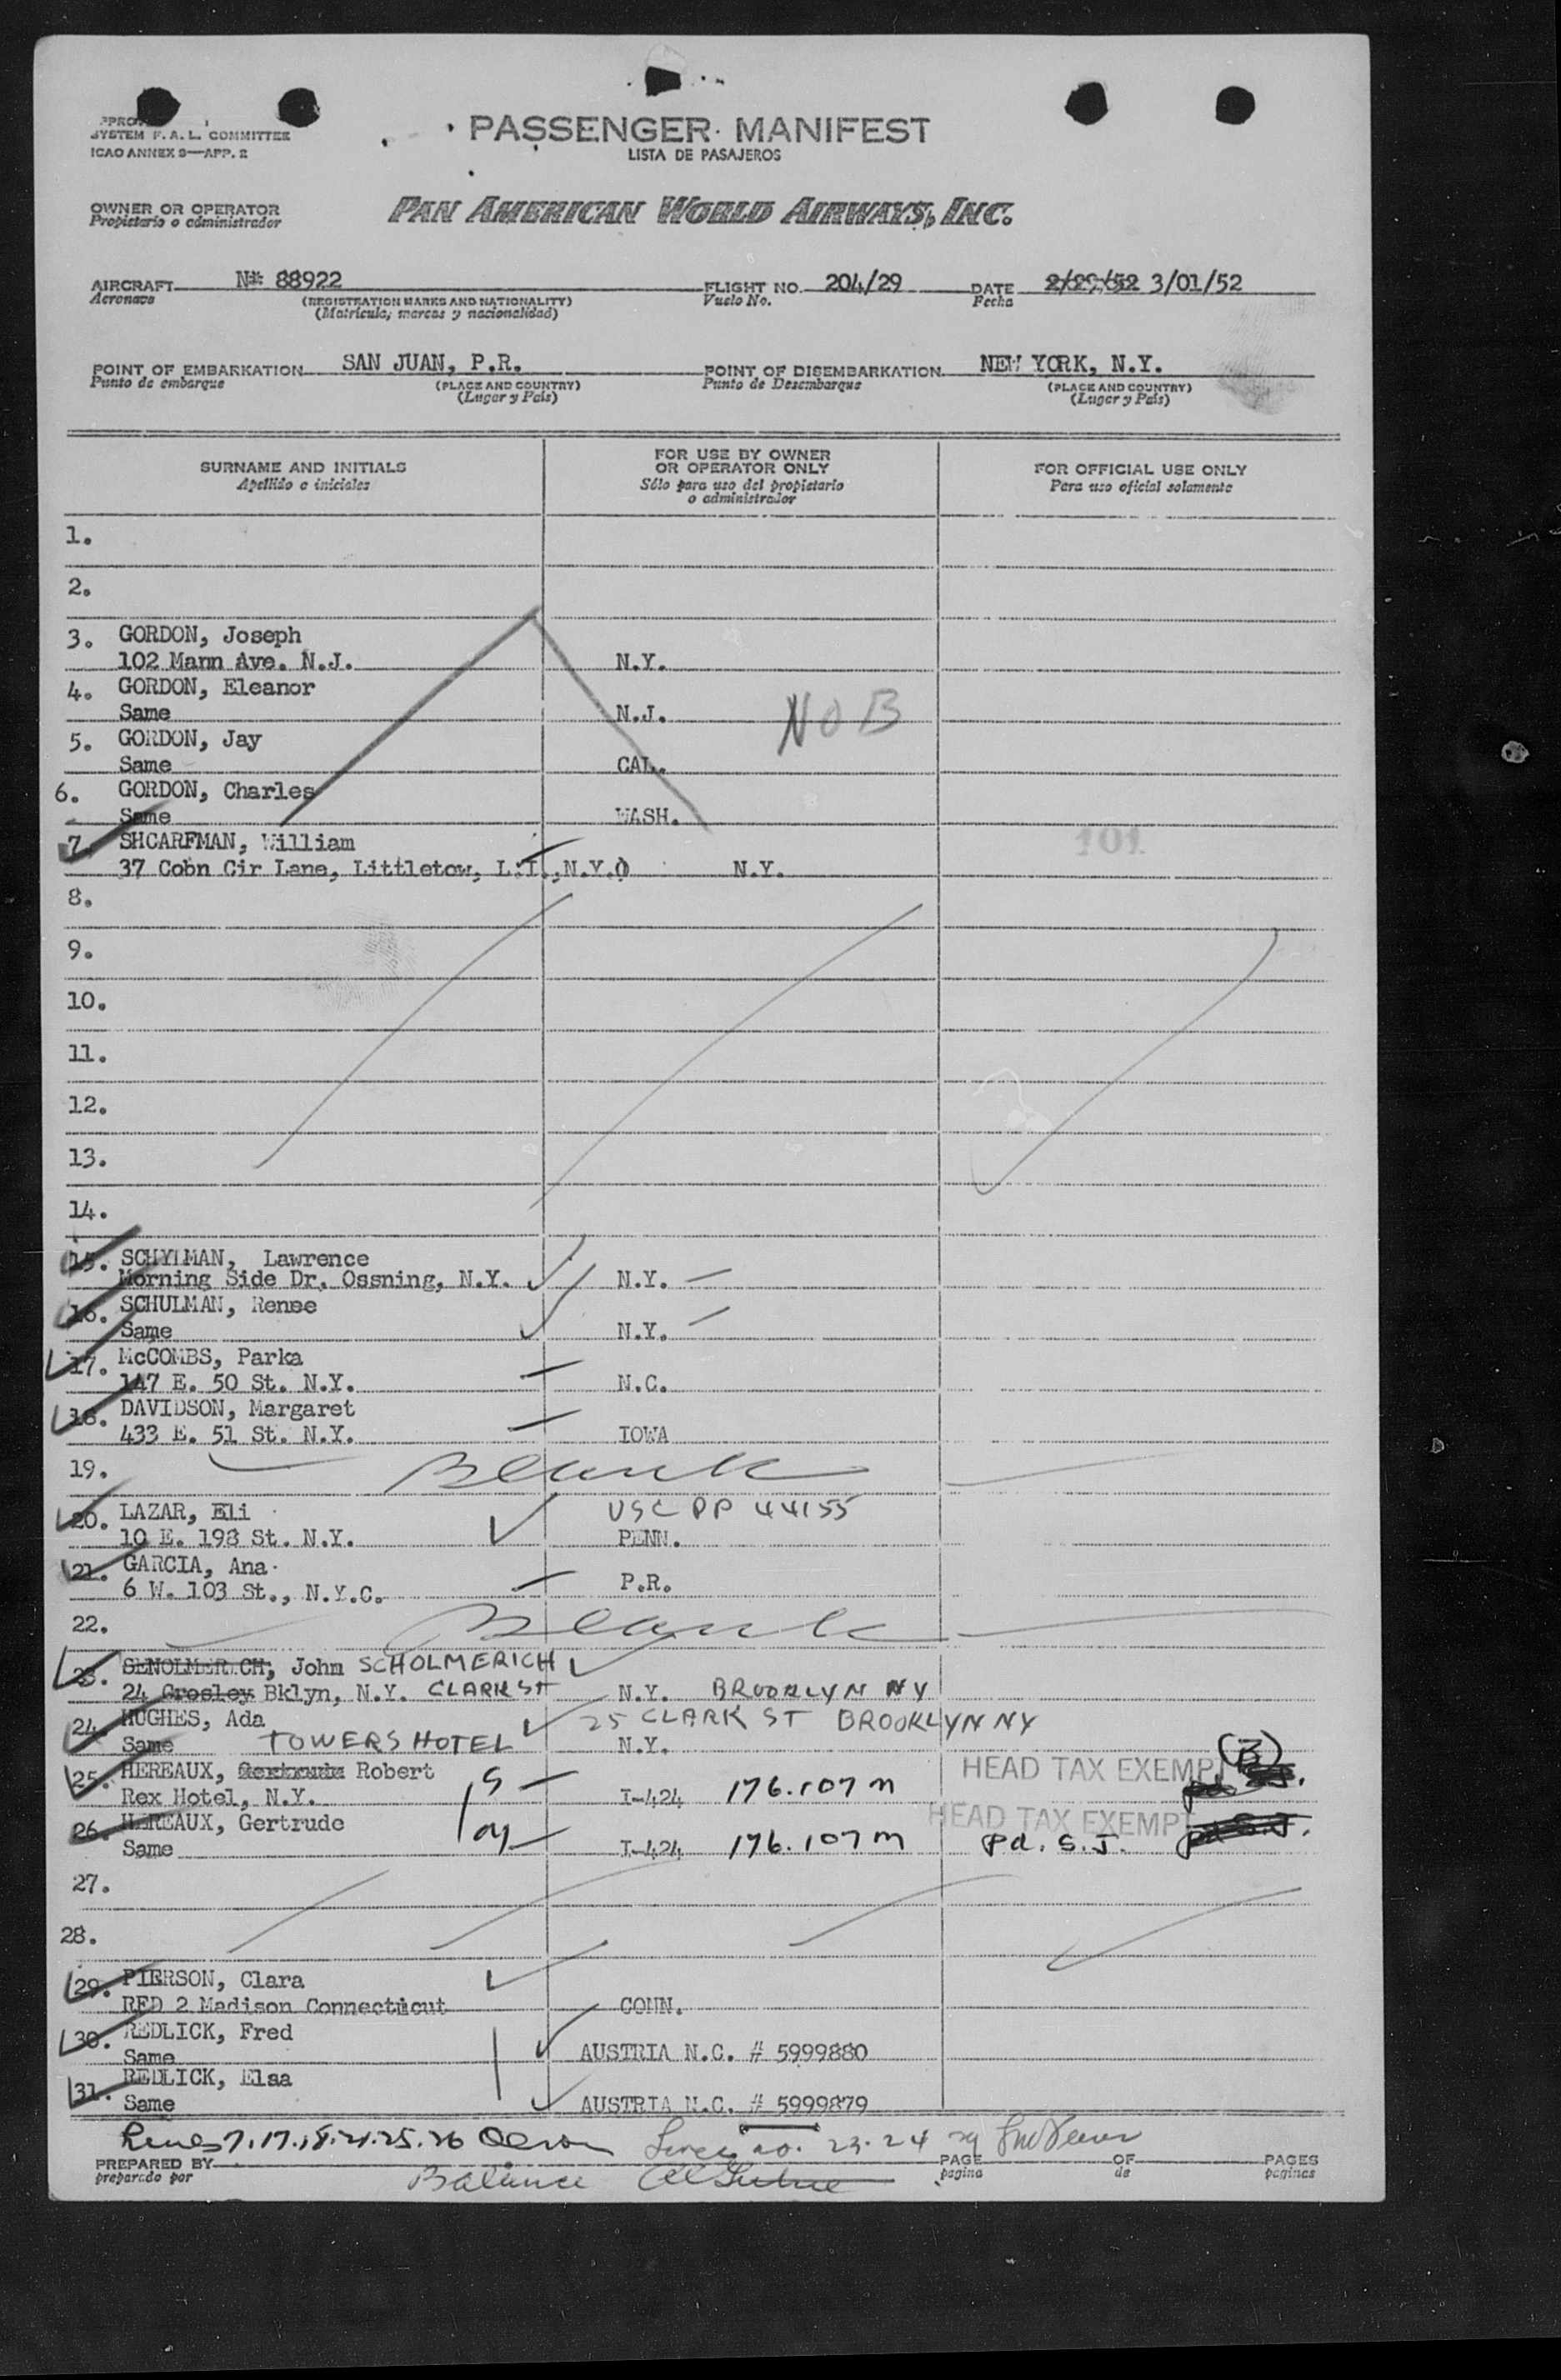 SYSTEM F. A. L. COMMITTEE
ICAO ANNEX 9—APP. 2
PASSENGER MANIFEST
LISTA DE PASAJEROS
OWNER OR OPERATOR
Propietario o administrador
PAN AMERICAN WORLD AIRWAYS, INC.
AIRCRAFT N# 88922 FLIGHT NO. 204/29 DATE 2/29/52 3/01/52
Aeronave (REGISTRATION MARKS AND NATIONALITY) Vuelo No. Fecha
(Matricula, marcas y nacionalidad)
POINT OF EMBARKATION SAN JUAN, P.R. POINT OF DISEMBARKATION NEW YORK, N.Y.
Punto de embarque (PLACE AND COUNTRY) Punto de Desembarque (PLACE AND COUNTRY)
(Lugar y País) (Lugar y País)
SURNAME AND INITIALS FOR USE BY OWNER OR OPERATOR ONLY FOR OFFICIAL USE ONLY
Apellido e iniciales Sólo para uso del propietario o administrador Para uso oficial solamente
1.
2.
3. GORDON, Joseph
102 Mann Ave. N.J. N.Y.
4. GORDON, Eleanor
Same N.J. NOB
5. GORDON, Jay
Same CAL.
6. GORDON, Charles
Same WASH.
7. SHCARFMAN, William 101
37 Cobn Cir Lane, Littletow, L.I.,N.Y.() N.Y.
8.
9.
10.
11.
12.
13.
14.
15. SCHYLMAN, Lawrence
Morning Side Dr. Ossning, N.Y. N.Y.
16. SCHULMAN, Renee
Same N.Y.
17. McCOMBS, Parka
147 E. 50 St. N.Y. N.C.
18. DAVIDSON, Margaret
433 E. 51 St. N.Y. IOWA
19. Blank
20. LAZAR, Eli USC PP 44155
10 E. 198 St. N.Y. PENN.
21. GARCIA, Ana
6 W. 103 St., N.Y.C. P.R.
22. Blank
23. SENOLMERICH, John SCHOLMERICH
24 Crosley Bklyn, N.Y. CLARK ST N.Y. BROOKLYN NY
24. HUGHES, Ada 25 CLARK ST BROOKLYN NY
Same TOWERS HOTEL N.Y.
25. HEREAUX, Gertrude Robert HEAD TAX EXEMPT (B)
Rex Hotel, N.Y. I-424 176.107 M
26. HEREAUX, Gertrude HEAD TAX EXEMPT
Same I-424 176.107 M Pd. S.J. pd S.J.
27.
28.
29. PIERSON, Clara
RED 2 Madison Connecticut CONN.
30. REDLICK, Fred
Same AUSTRIA N.C. # 5999880
31. REDLICK, Elsa
Same AUSTRIA N.C. # 5999879
Lines 7.17.18.21.25.26 23.24 29
PREPARED BY PAGE OF PAGES
preparado por Balance pagina de paginas